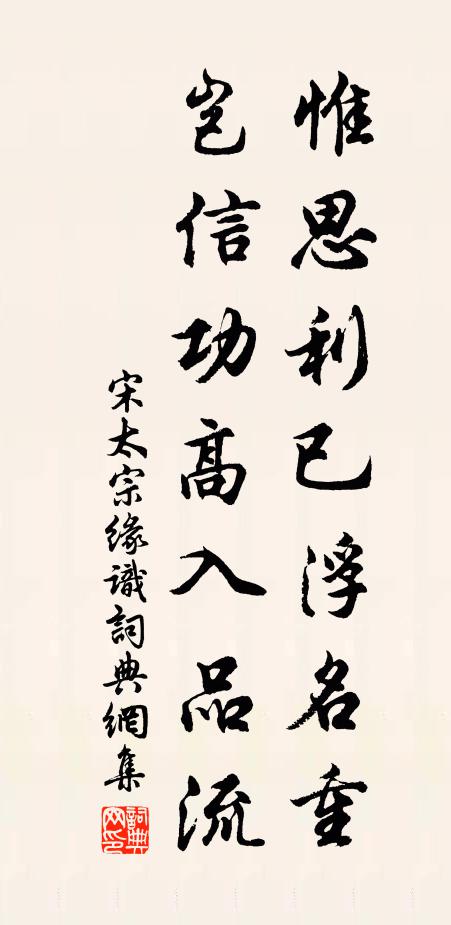 惟思利已浮名重
豈信功高入品流
宋太宗緣識詞典網集
詞典網印